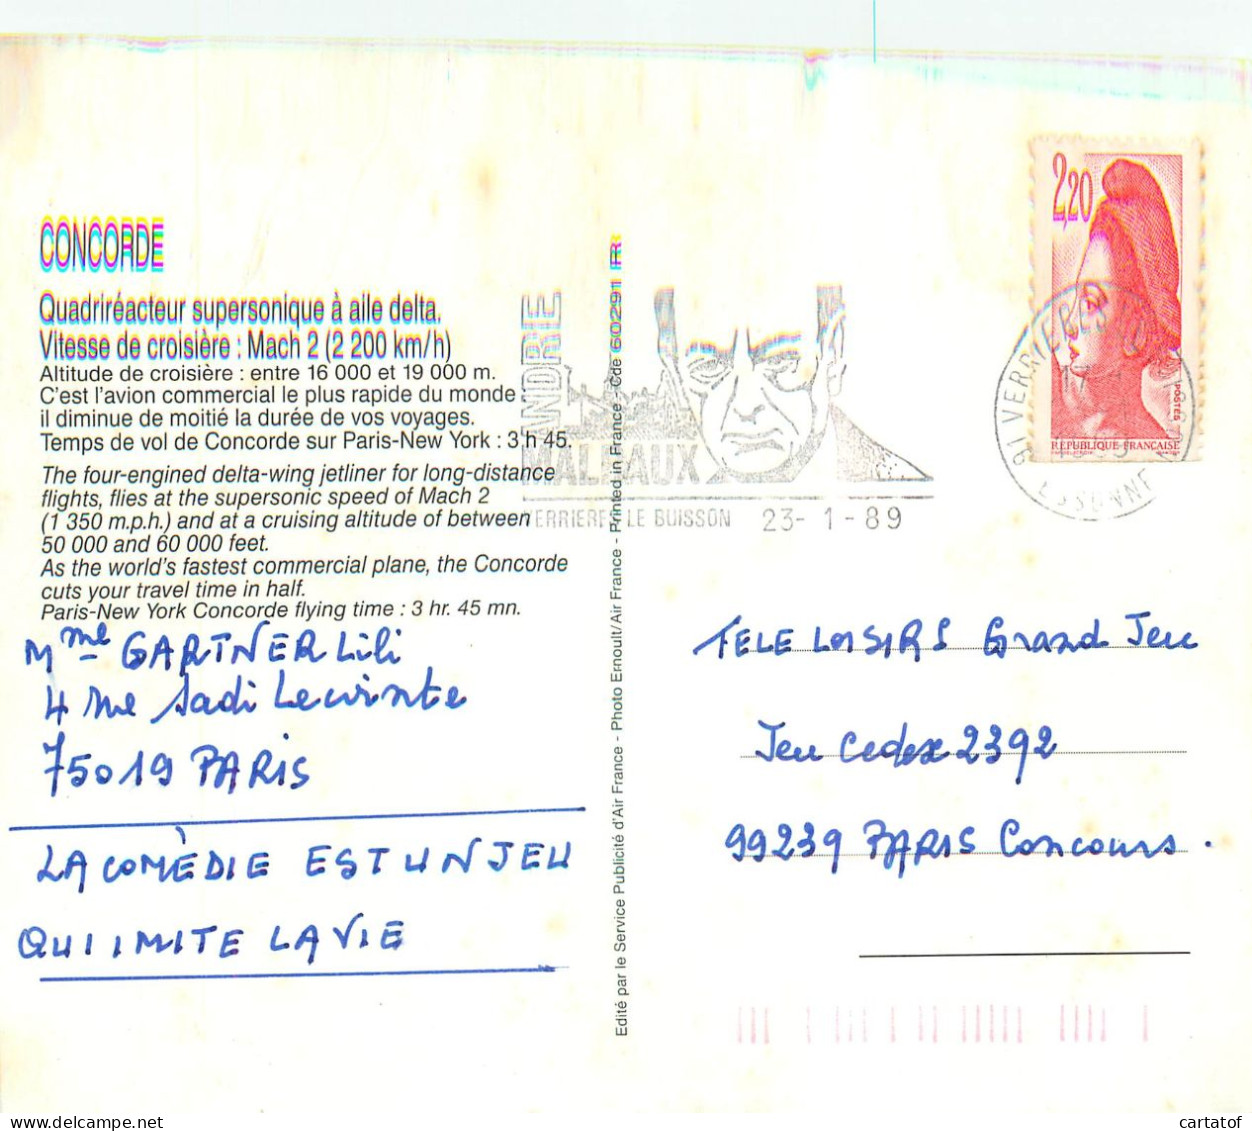 CONCORDE
Quadriréacteur supersonique à aile delta.
Vitesse de croisière : Mach 2 (2 200 km/h)
Altitude de croisière : entre 16 000 et 19 000 m.
C'est l'avion commercial le plus rapide du monde :
il diminue de moitié la durée de vos voyages.
Temps de vol de Concorde sur Paris-New York : 3 h 45.
The four-engined delta-wing jetliner for long-distance
flights, flies at the supersonic speed of Mach 2
(1 350 m.p.h.) and at a cruising altitude of between
50 000 and 60 000 feet.
As the world's fastest commercial plane, the Concorde
cuts your travel time in half.
Paris-New York Concorde flying time : 3 hr. 45 mn.
Mme GARTNER Lili
4 rue Sadi Lecointe
75019 PARIS
LA COMÈDIE EST UN JEU
QUI IMITE LA VIE
Edité par le Service Publicité d'Air France - Photo Ernoult/Air France - Printed in France - Cde 602911 FR
ANDRE
MALRAUX
VERRIERES LE BUISSON 23-1-89
2,20
POSTES
REPUBLIQUE FRANÇAISE
91 VERRIERES LE BUISSON
ESSONNE
TELE LOISIRS Grand Jeu
Jeu Cedex 2392
99239 PARIS Concours.
cartatof